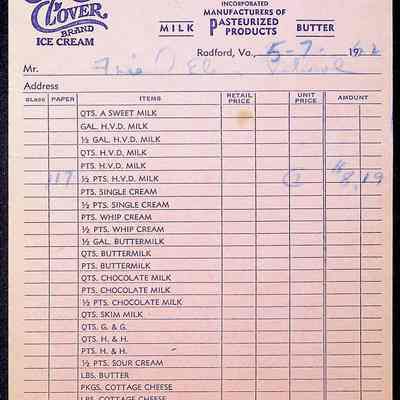 CLOVER
BRAND
ICE CREAM
INCORPORATED
MANUFACTURERS OF
MILK PASTEURIZED PRODUCTS BUTTER
Radford, Va., 5-7- 19
Mr.
Address
GLASS PAPER ITEMS RETAIL PRICE UNIT PRICE AMOUNT
QTS. A SWEET MILK
GAL. H.V.D. MILK
½ GAL. H.V.D. MILK
QTS. H.V.D. MILK
PTS. H.V.D. MILK
117 ½ PTS. H.V.D. MILK @ 8.19
PTS. SINGLE CREAM
½ PTS. SINGLE CREAM
PTS. WHIP CREAM
½ PTS. WHIP CREAM
½ GAL. BUTTERMILK
QTS. BUTTERMILK
PTS. BUTTERMILK
QTS. CHOCOLATE MILK
PTS. CHOCOLATE MILK
½ PTS. CHOCOLATE MILK
QTS. SKIM MILK
QTS. G. & G.
QTS. H. & H.
PTS. H. & H.
½ PTS. SOUR CREAM
LBS. BUTTER
PKGS. COTTAGE CHEESE
LBS. COTTAGE CHEESE